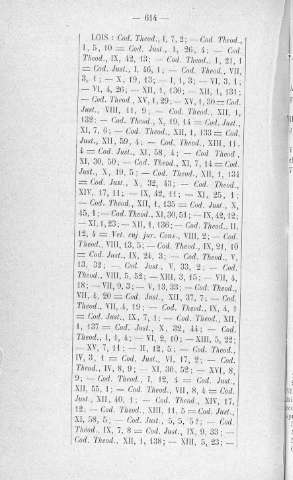 — 614 —
LOIS : Cod. Theod., I, 7, 2; — Cod. Theod.,
1, 5, 10 = Cod. Just., 1, 26, 4; — Cod.
Theod., IX, 42, 13; — Cod. Theod., 1, 21, 1
= Cod. Just., I, 46, 1; — Cod. Theod., VII,
3, 1; — X, 19, 13; — I, 1, 3; — VI, 3, 1
— VI, 4, 26; — XII, 1, 130; — XII, 1, 131;
— Cod. Theod., XV, 1, 29; — XV, 1, 30 = Cod.
Just., VIII, 11, 9; — Cod. Theod., XII, 1,
132; — Cod. Theod., X, 19, 14 = Cod. Just.,
XI, 7, 6; — Cod. Theod., XII, 1, 133 = Cod.
Just., XII, 59, 4; — Cod. Theod., XIII, 11,
4 = Cod. Just., XI, 58, 4; — Cod. Theod.,
XI, 30, 50; — Cod. Theod., XI, 7, 14 = Cod.
Just., X, 19, 5; — Cod. Theod., XII, 1, 134
= Cod. Just., X, 32, 43; — Cod. Theod.,
XIV, 17, 11; — IX, 42, 11; — XI, 25, 1;
— Cod. Theod., XII, 1, 135 = Cod. Just., X,
45, 1; — Cod. Theod., XI, 30, 51; — IX, 42, 12;
— XI, 1, 23; — XII, 1, 136; — Cod. Theod., II,
12, 4 = Vet. cuj. jur. Cons., VIII, 2; — Cod.
Theod., VIII, 13, 5; — Cod. Theod., IX, 21, 10
= Cod. Just., IX, 24, 3; — Cod. Theod., V,
13, 32; — Cod. Just., V, 33, 2; — Cod.
Theod., VIII, 5, 52; — XIII, 3, 15; — VII, 4,
18; — VII, 9, 3; — V, 13, 33; — Cod. Theod.,
VII, 4, 20 = Cod. Just., XII, 37, 7; — Cod.
Theod., VII, 4, 19; — Cod. Theod., IX, 4, 1
= Cod. Just., IX, 7, 1; — Cod. Theod., XII,
1, 137 = Cod. Just., X, 32, 44; — Cod.
Theod., I, 1, 4; — VI, 2, 10; — XIII, 5, 22;
— XV, 7, 11; — II, 12, 5; — Cod. Theod.,
IV, 3, 1 = Cod. Just., VI, 17, 2; — Cod.
Theod., IV, 8, 9; — XI, 30, 52; — XVI, 8,
9; — Cod. Theod., I, 12, 4 = Cod. Just.,
XII, 55, 1; — Cod. Theod., VII, 8, 4 = Cod.
Just., XII, 40, 1; — Cod. Theod., XIV, 17,
12; — Cod. Theod., XIII, 11, 5 = Cod. Just.,
XI, 58, 5; — Cod. Just., 5, 5, 5; — Cod.
Theod., IX, 7, 8 = Cod. Just., IX, 9, 33; —
Cod. Theod., XII, 1, 138; — XIII, 5, 23; —